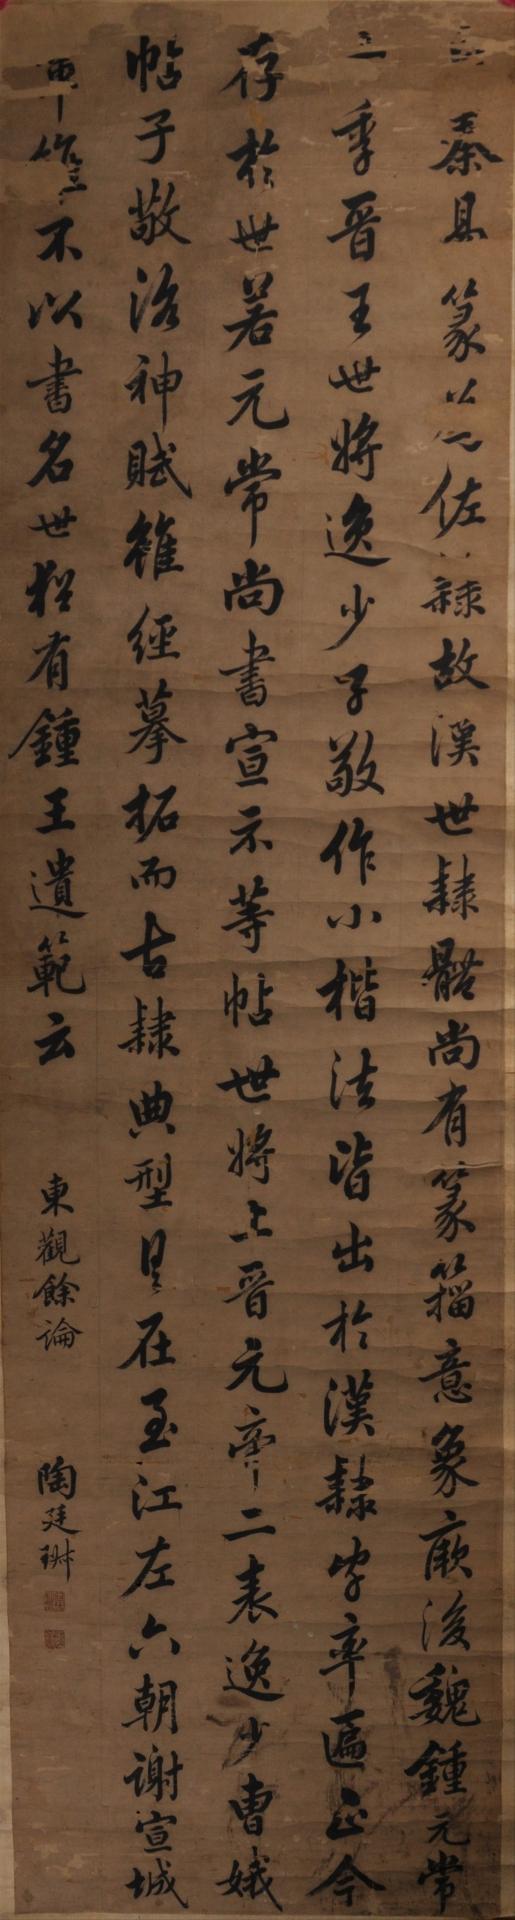 秦易篆為佐隸故漢世隸體尚有篆籀意象厥後魏鍾元常
士季晉王世將逸少子敬作小楷法皆出於漢隸字率匾正今
存於世若元常尚書宣示等帖世將上晉元帝二表逸少曹娥
帖子敬洛神賦雖經摹拓而古隸典型具在至江左六朝謝宣城
軰雖不以書名世猶有鍾王遺範云
東觀餘論
陶廷琡